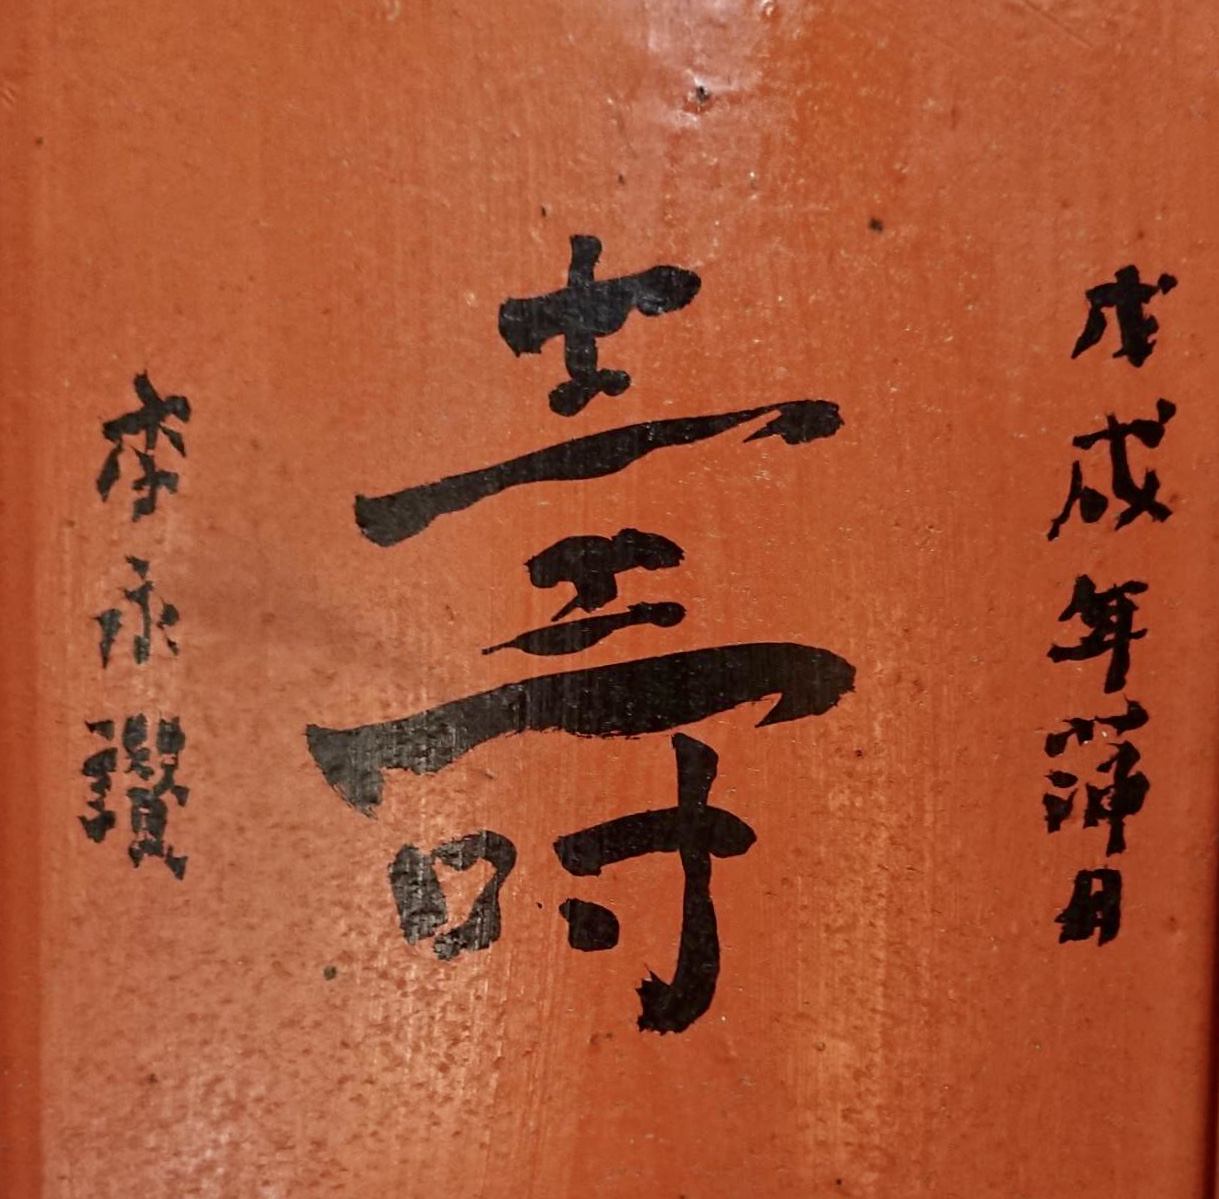 戊戌年蒲月
壽
李永讚